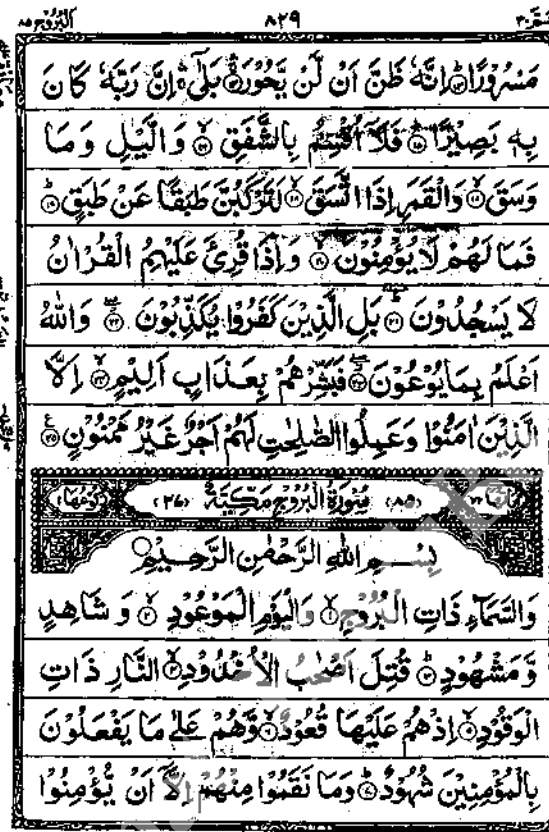 البروج ٨٥ ٨٢٩ عمّ ٣٠
مَسْرُوْرًا ﴿١٣﴾ اِنَّهٗ ظَنَّ اَنْ لَّنْ يَّحُوْرَ ﴿١٤﴾ بَلٰٓى اِنَّ رَبَّهٗ كَانَ
بِهٖ بَصِيْرًا ﴿١٥﴾ فَلَآ اُقْسِمُ بِالشَّفَقِ ﴿١٦﴾ وَالَّيْلِ وَمَا
وَسَقَ ﴿١٧﴾ وَالْقَمَرِ اِذَا اتَّسَقَ ﴿١٨﴾ لَتَرْكَبُنَّ طَبَقًا عَنْ طَبَقٍ ﴿١٩﴾
فَمَا لَهُمْ لَا يُؤْمِنُوْنَ ﴿٢٠﴾ وَاِذَا قُرِئَ عَلَيْهِمُ الْقُرْاٰنُ
لَا يَسْجُدُوْنَ ﴿٢١﴾ بَلِ الَّذِيْنَ كَفَرُوْا يُكَذِّبُوْنَ ﴿٢٢﴾ وَاللّٰهُ
اَعْلَمُ بِمَا يُوْعُوْنَ ﴿٢٣﴾ فَبَشِّرْهُمْ بِعَذَابٍ اَلِيْمٍ ﴿٢٤﴾ اِلَّا
الَّذِيْنَ اٰمَنُوْا وَعَمِلُوا الصّٰلِحٰتِ لَهُمْ اَجْرٌ غَيْرُ مَمْنُوْنٍ ﴿٢٥﴾
اٰيَاتُهَا ٢٢ (٨٥) سُوْرَةُ الْبُرُوْجِ مَكِّيَّةٌ (٢٧) رُكُوْعُهَا ١
بِسْمِ اللّٰهِ الرَّحْمٰنِ الرَّحِيْمِ
وَالسَّمَآءِ ذَاتِ الْبُرُوْجِ ﴿١﴾ وَالْيَوْمِ الْمَوْعُوْدِ ﴿٢﴾ وَشَاهِدٍ
وَّمَشْهُوْدٍ ﴿٣﴾ قُتِلَ اَصْحٰبُ الْاُخْدُوْدِ ﴿٤﴾ النَّارِ ذَاتِ
الْوَقُوْدِ ﴿٥﴾ اِذْ هُمْ عَلَيْهَا قُعُوْدٌ ﴿٦﴾ وَّهُمْ عَلٰى مَا يَفْعَلُوْنَ
بِالْمُؤْمِنِيْنَ شُهُوْدٌ ﴿٧﴾ وَمَا نَقَمُوْا مِنْهُمْ اِلَّآ اَنْ يُّؤْمِنُوْا